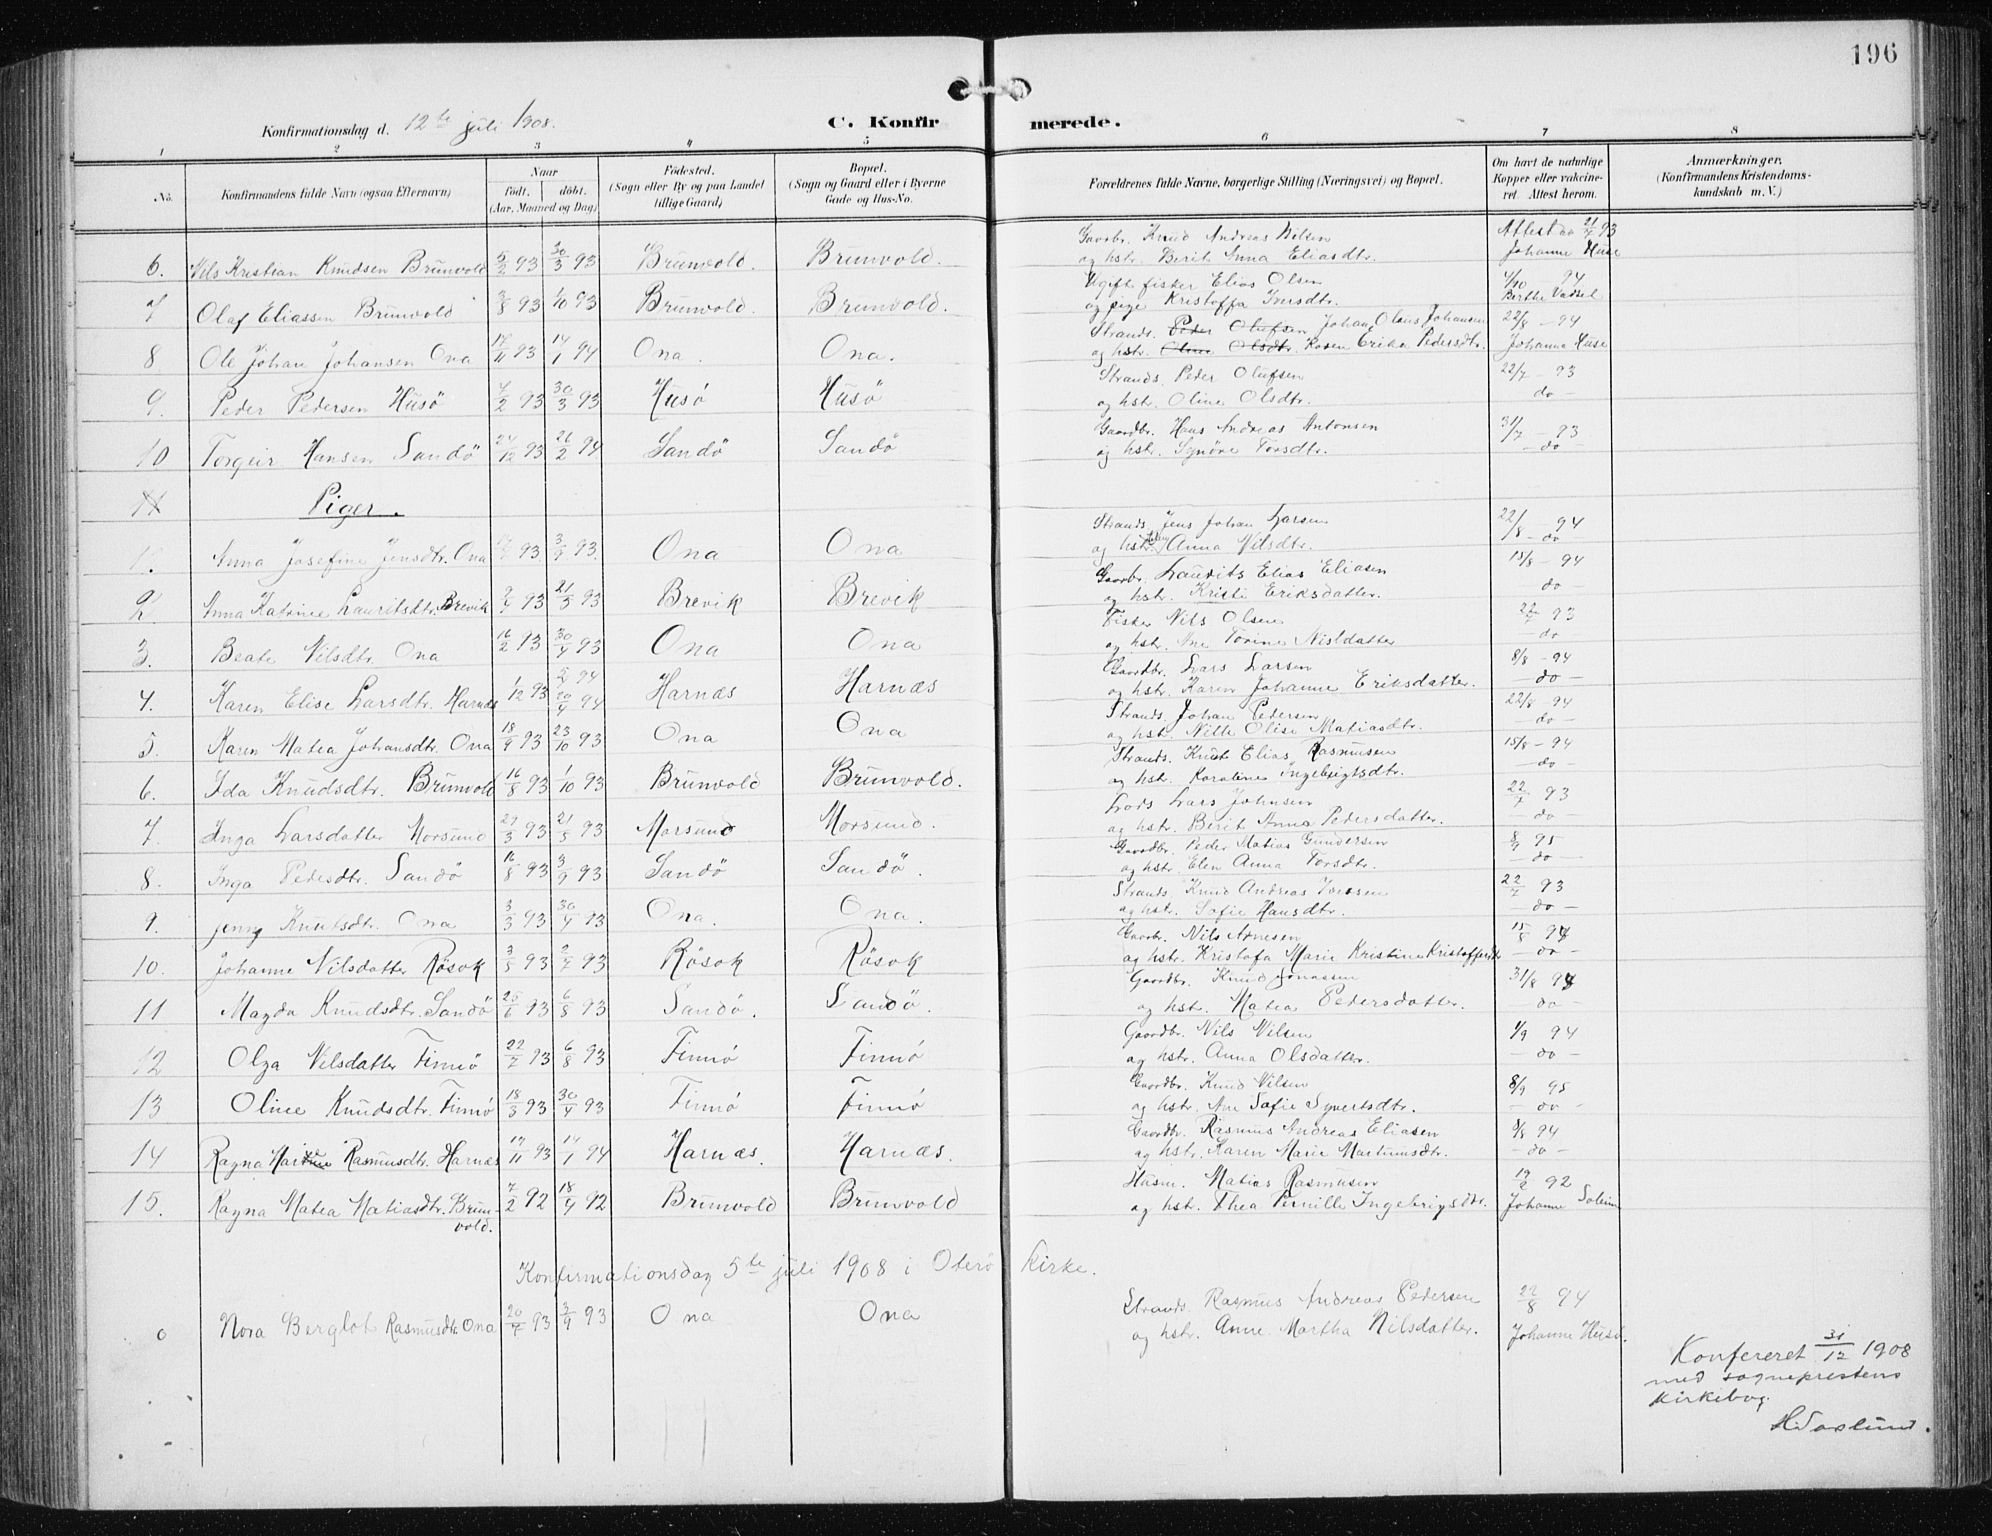 196
Konfirmationsdag d. 12te juli 1908.
C. Konfirmerede.
1 2 3 4 5 6 7 8
No. Konfirmandens fulde Navn (ogsaa Efternavn) Naar født. døbt. (Aar, Maaned og Dag) Fødested. (Sogn eller By og paa Landet tillige Gaard) Bopæl. (Sogn og Gaard eller i Byerne Gade og Hus-No. Forældrenes fulde Navne, borgerlige Stilling (Næringsvei) og Bopæl. Om havt de naturlige Kopper eller vaccineret Attest herom. Anmærkninger. (Konfirmandens Kristendomskundskab m. V.)
6. Nils Kristian Knudsen Brunvold 5/2 93 30/3 93 Brunvold. Brunvold. Gaardbr. Knud Andreas Nilsen Attest da 21/7 93
og hstr. Berit Anna Eliasdtr. Johanne Huse
7 Olaf Eliassen Brunvold 3/8 93 1/10 93 Brunvold. Brunvold. Ugift fisker Elias Olsen 4/10 94
og pige Kristoffa Iversdtr. Berthe Vadset
8 Ole Johan Johansen Ona 17/11 93 14/1 94 Ona. Ona. Strands. Peder Olufsen Johan Olaus Johansen 22/8 - 94
og hstr. Oline Olsdtr. Rosen Erika Pedersdtr. Johanne Huse
9. Peder Pedersen Husö 7/2 93 30/3 93 Husö Husö Strands. Peder Olufsen 22/7 - 93
og hstr. Oline Olsdtr. do
10 Torgeir Hansen Sandö 24/12 93 26/2 94 Sandö Sandö Gaardbr. Hans Andreas Antonsen 31/7 - 93
og hstr. Synöve Torsdtr. - do -
11 Piger.
1. Anna Josefine Jensdtr. Ona 93 3/9 93. Ona Ona Strands. Jens Johan Larsen 22/8 - 94
og hstr. Anna Nilsdtr. - do
2. Anna Katrine Lauritsdtr. Brevik 93 21/3 93 Brevik Brevik Gaardbr. Laurits Elias Eliasen 15/8 - 94
og hstr. Kristi Eriksdatter. do
3. Beate Nilsdtr. Ona 16/2 93 30/4 93 Ona Ona Fisker Nils Olsen 22/7 93
og hstr. Ane Torine Nisldatter - do
4. Karen Elise Larsdtr. Harnæs 1/12 93 5/2 94 20/4 94 Harnæs Harnæs Gaardbr. Lars Larsen 8/8 - 94
og hstr. Karen Johanne Eriksdatter. - do -
5. Karen Matea Johansdtr. Ona 18/9 93 23/10 93 Ona Ona Strands. Johan Pedersen 22/8 - 94
og hstr. Nille Olise Matiasdtr. - do -
6. Ida Knudsdtr. Brunvold 16/8 93 1/10 93 Brunvold Brunvold. Strands. Knut Elias Rasmusen 15/8 - 94
og hstr. Karoline Ingebrigtsdtr. - do -
7 Inga Larsdatter Morsund 29/3 93 21/5 93 Morsund Morsund. Lods Lars Johnsen 22/7 93
og hstr. Berit Anna Pedersdatter. - do -
8. Inga Pedesdtr. Sandö 16/8 93 3/9 93 Sandö Sandö. Gaardbr. Peder Matias Gundersen 8/9 95
og hstr. Elen Anna Torsdtr. - do -
9. Jenny Knutsdtr. Ona 3/3 93 30/4 93 Ona. Ona. Strands. Knud Andreas Iversen 22/7 93
og hstr. Sofie Hansdtr. - do -
10. Johanne Nilsdatter Rösok 3/5 93 2/7 93 Rösok Rösok Gaardbr. Nils Arnesen 15/8 94
og hstr. Kristofa Marie Kristine Kristoffersdtr - do -
11 Magda Knudsdtr. Sandö 25/6 93 6/8 93 Sandö. Sandö. Gaardbr. Knud Jonassen 31/8 94
og hstr. Matea Pedersdatter. - do -
12 Olga Nilsdatter Finnö 22/7 93 6/8 93 Finnö Finnö Gaardbr. Nils Nilsen 1/9 94
og hstr. Anna Olsdatter. - do -
13 Oline Knudsdtr. Finnö 18/3 93 30/4 93 Finnö Finnö Gaardbr. Knud Nilsen 8/9 95
og hstr. Ane Sofie Syvertsdtr. - do -
14 Ragna Rasmusdtr. Harnæs 17/11 93 14/1 94 Harnæs. Harnæs. Gaardbr. Rasmus Andreas Eliasen 8/8 94
og hstr. Karen Marie Martinusdtr. - do -
15. Ragna Matea Matiasdtr. Brun- 7/2 92 18/4 92 Brunvold Brunvold Husm. Matias Rasmusen 92
vold. og hstr. Thea Pernille Ingebrigsdtr. Johanne Solem
Konfirmationsdag 5te juli 1908 i Oterö kirke.
Nora Berglot Rasmusdtr. Ona 20/7 93 3/9 93 Ona Ona Strands. Rasmus Andreas Pedersen 22/8 94
og hstr. Anne Martha Nilsdatter. Johanne Huse.
Konfereret 31/12 1908
med sogneprestens
kirkebog.